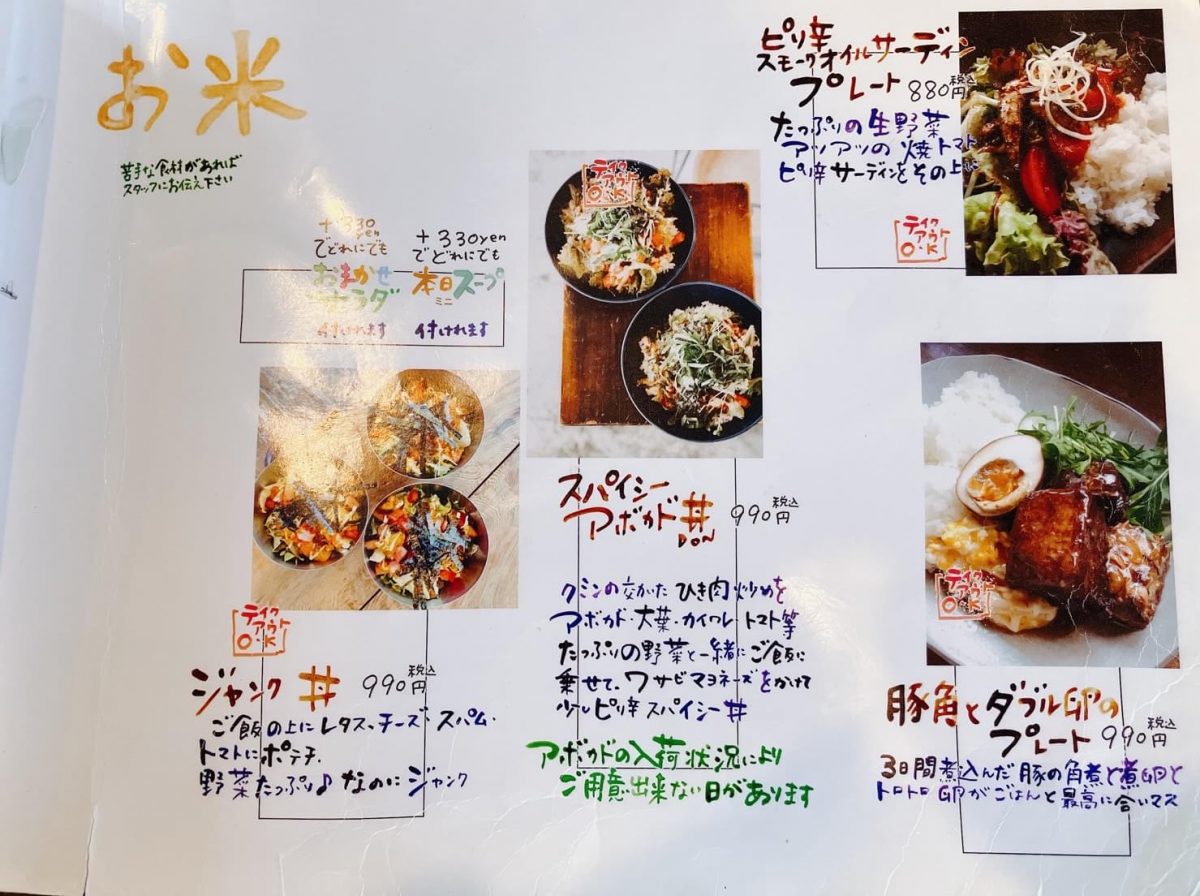 お米
苦手な食材があれば
スタッフにお伝え下さい
+330yen
でどれにでも
おまかせ
サラダ
付けれます
+330yen
でどれにでも
本日スープ
ミニ
付けれます
テイク
アウト
O・K
ジャンク丼 990円 税込
ご飯の上にレタス、チーズ、スパム、
トマトにポテチ
野菜たっぷり♪なのにジャンク
テイク
アウト
O・K
スパイシー
アボカド丼 990円 税込
DON
クミンの効かた ひき肉炒めを
アボカド・大葉・カイワレ・トマト等
たっぷりの野菜と一緒にご飯に
乗せて、ワサビマヨネーズをかけて
少しピリ辛スパイシー丼
アボカドの入荷状況により
ご用意出来ない日があります
ピリ辛
スモークオイルサーディン
プレート 880円 税込
たっぷりの生野菜
アツアツの焼トマト
ピリ辛サーディンをその上に
テイク
アウト
O・K
テイク
アウト
O・K
豚角とダブル卵の
プレート 990円 税込
3日間煮込んだ豚の角煮と煮卵と
トロトロ卵がごはんと最高に合いマス